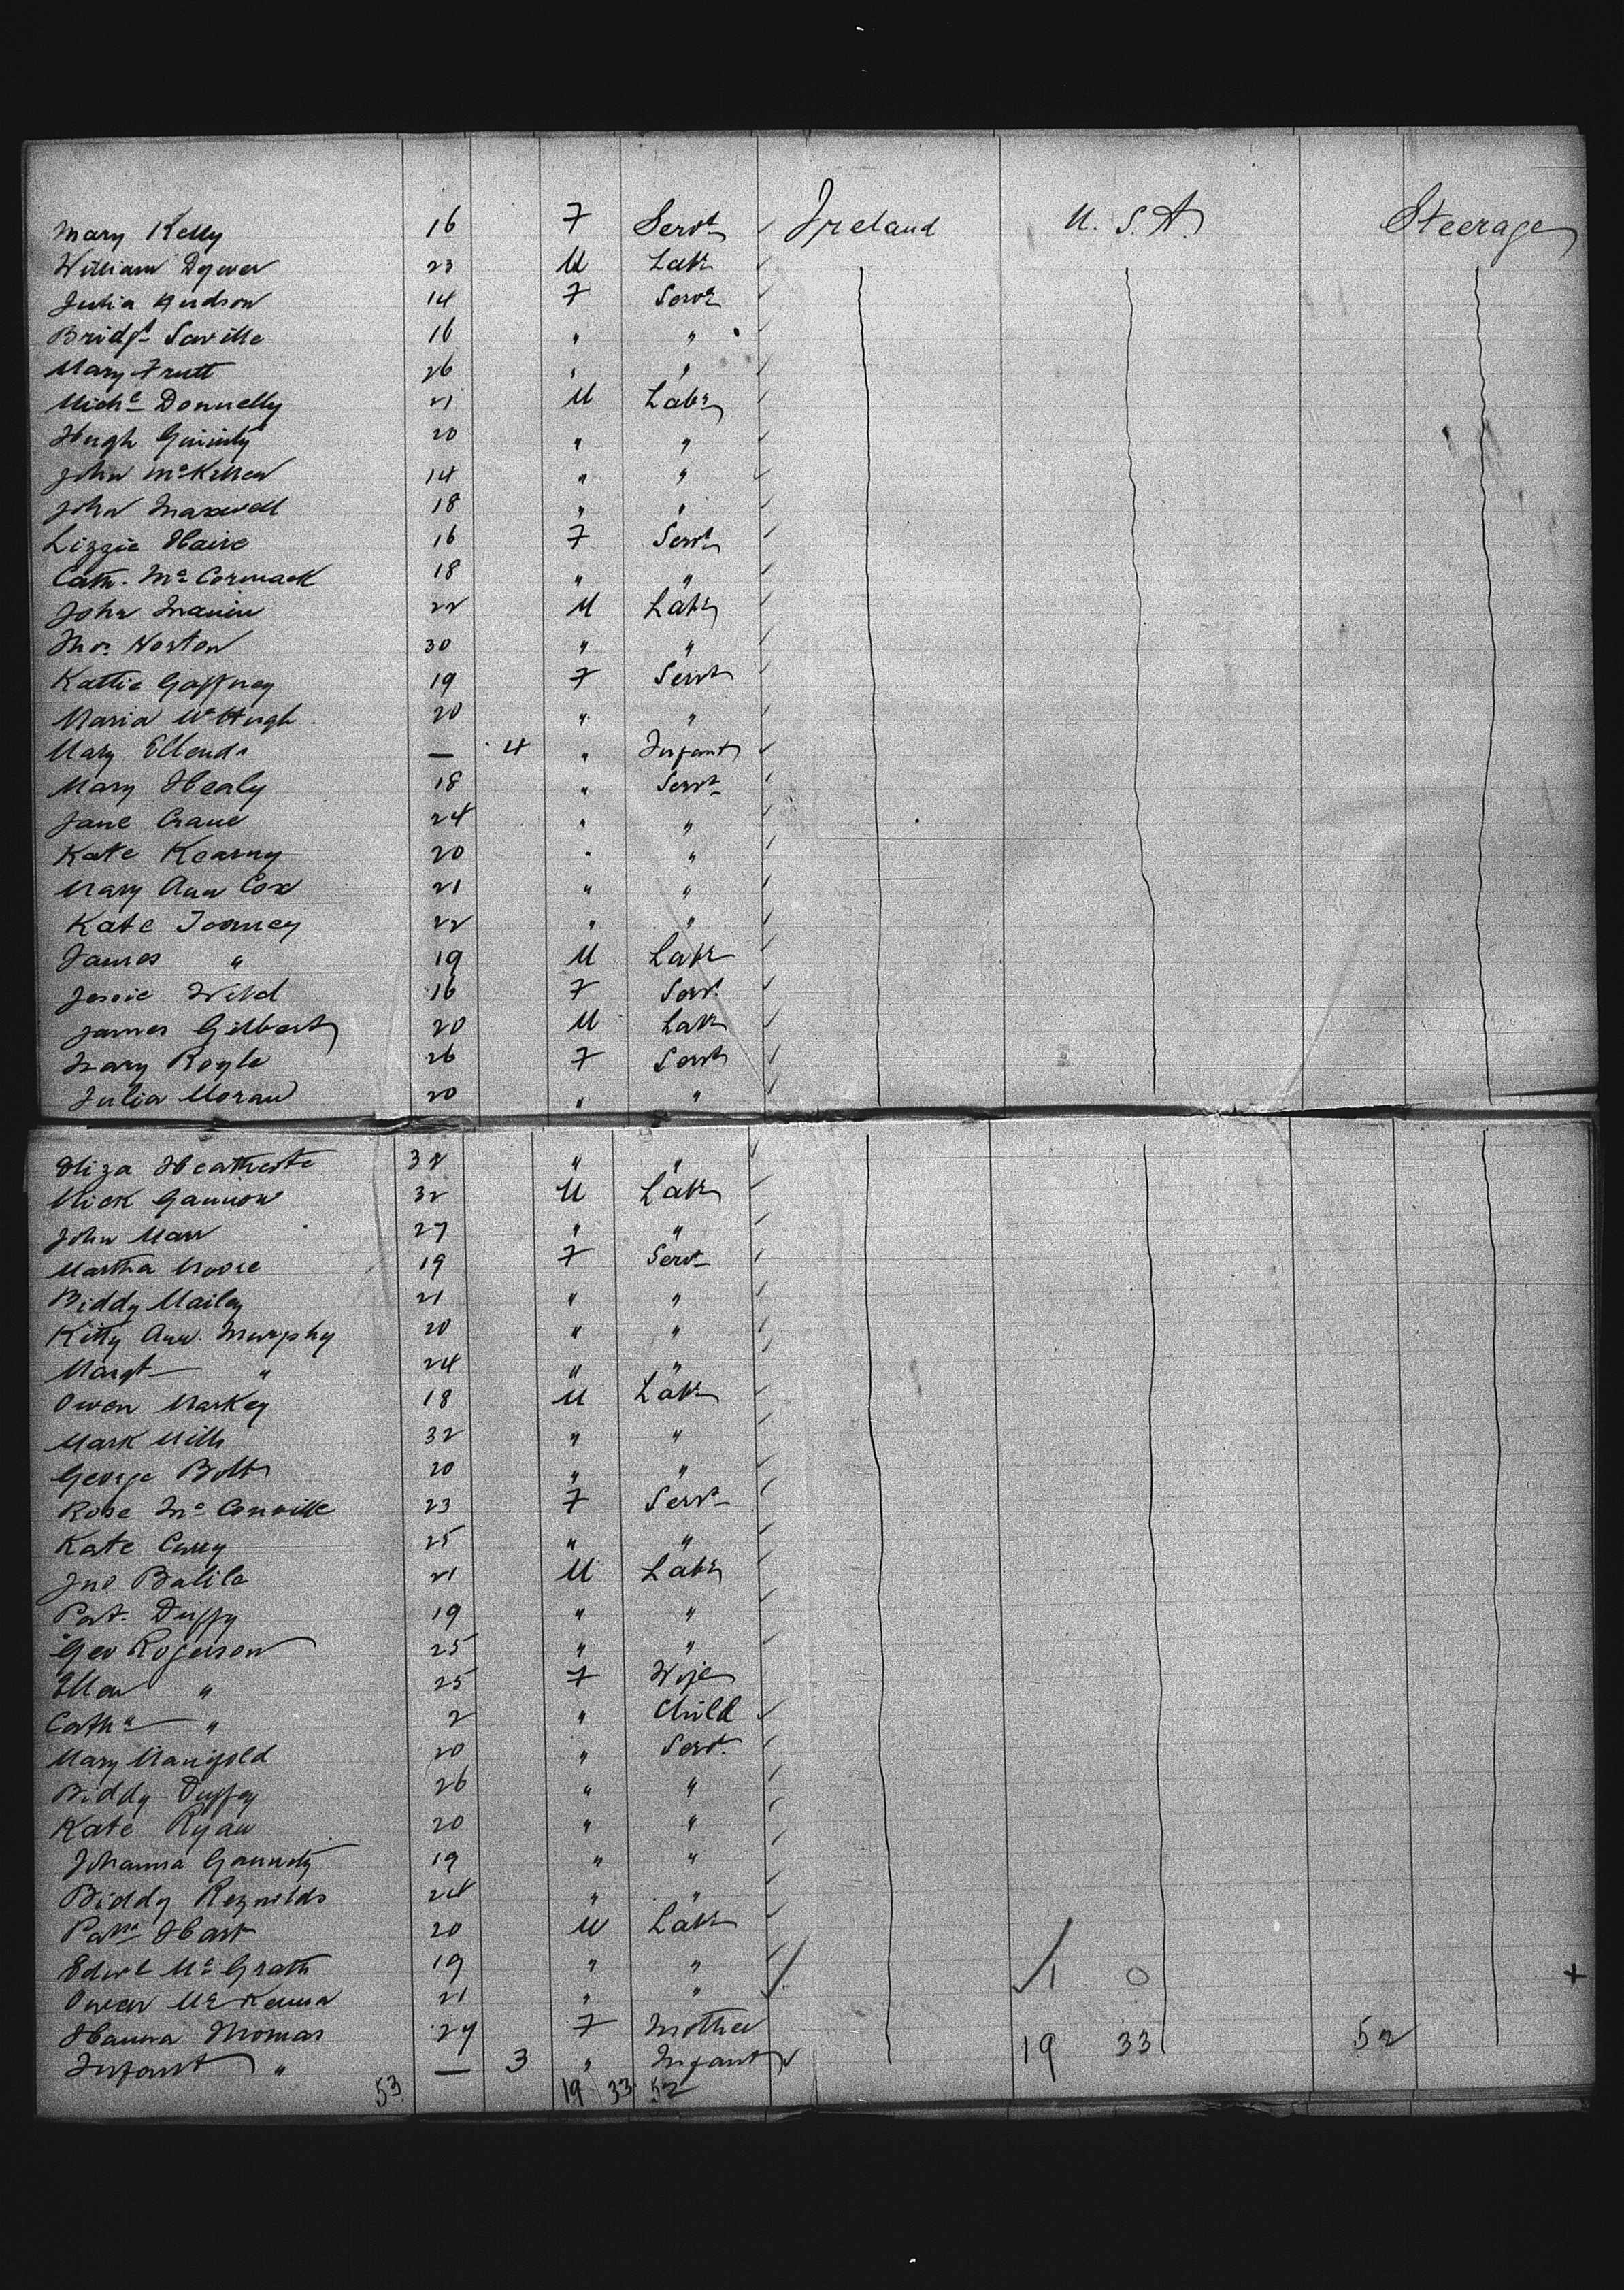 Mary Kelly 16 F Servt Ireland U.S.A. Steerage
William Dywer 23 M Labr
Julia Hudson 14 F Servt
Bridgt Saville 16 " "
Mary Frutt 26 " "
Michl Donnelly 21 M Labr
Hugh 20 " "
John 14 " "
John Maxwell 18 " "
Lizzie Haire 16 F Servt
Cath. McCormack 18 " "
John 22 M Labr
Thos Norton 30 " "
Kattie Gaffney 19 F Servt
Maria McHugh 20 " "
Mary Ellen do — 4 " Infant
Mary Healy 18 " Servt
Jane Crane 24 " "
Kate Kearny 20 " "
Mary Ann Cox 21 " "
Kate Toomey 22 " "
James " 19 M Labr
Jessie Wild 16 F Servt
James Gilbert 20 M Labr
Mary Royle 26 F Servt
Julia Moran 20 " "
Eliza Heathcote 32 " "
Mick Gannon 32 M Labr
John Marr 27 " "
Martha Moore 19 F Servt
Biddy Mailey 21 " "
Kitty Ann Murphy 20 " "
Margt " 24 " "
Owen Markey 18 M Labr
Mark Mills 32 " "
George Bolt 20 " "
Rose McConville 23 F Servt
Kate 25 " "
Jno 21 M Labr
Pat. Duffy 19 " "
Geo Rogerson 25 " "
Ellen " 25 F Wife
Cathe " 2 " Child
Mary Manifold 20 " Servt.
Biddy Duffey 26 " "
Kate Ryan 20 " "
Johanna 19 " "
Biddy Reynolds 24 " "
Patk Hart 20 M Labr
Edwd McGrath 19 " "
Owen McKenna 21 " " 1 0 +
Hanna Thomas 27 F Mother 19 33 52
Infant " — 3 " Infant
53 19 33 52